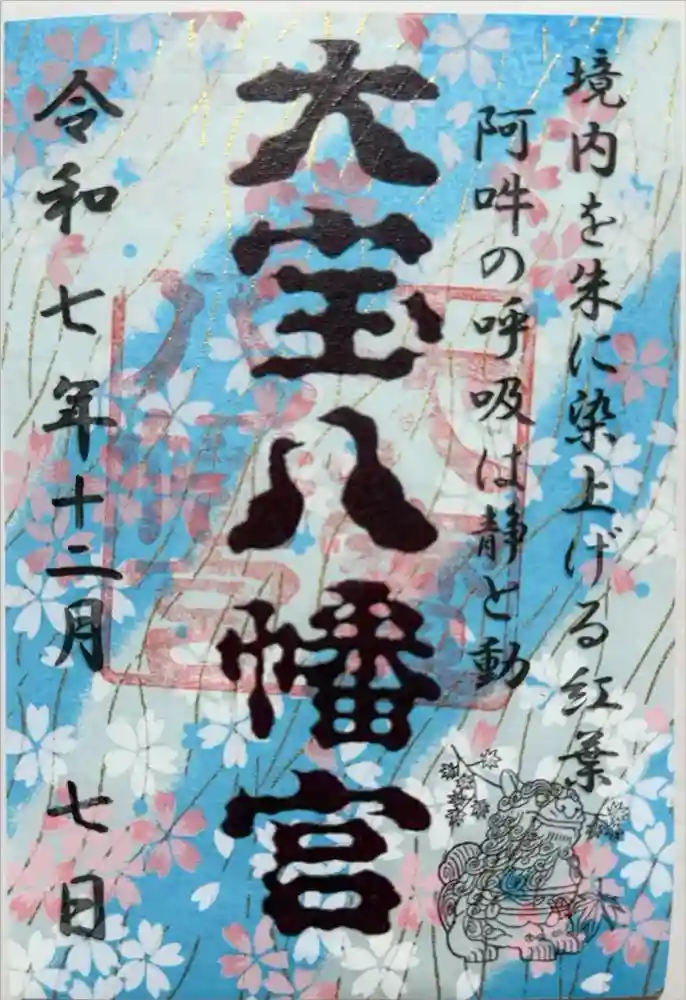 境内を朱に染上げる紅葉
阿吽の呼吸は静と動
大宝八幡宮
令和七年十二月 七日